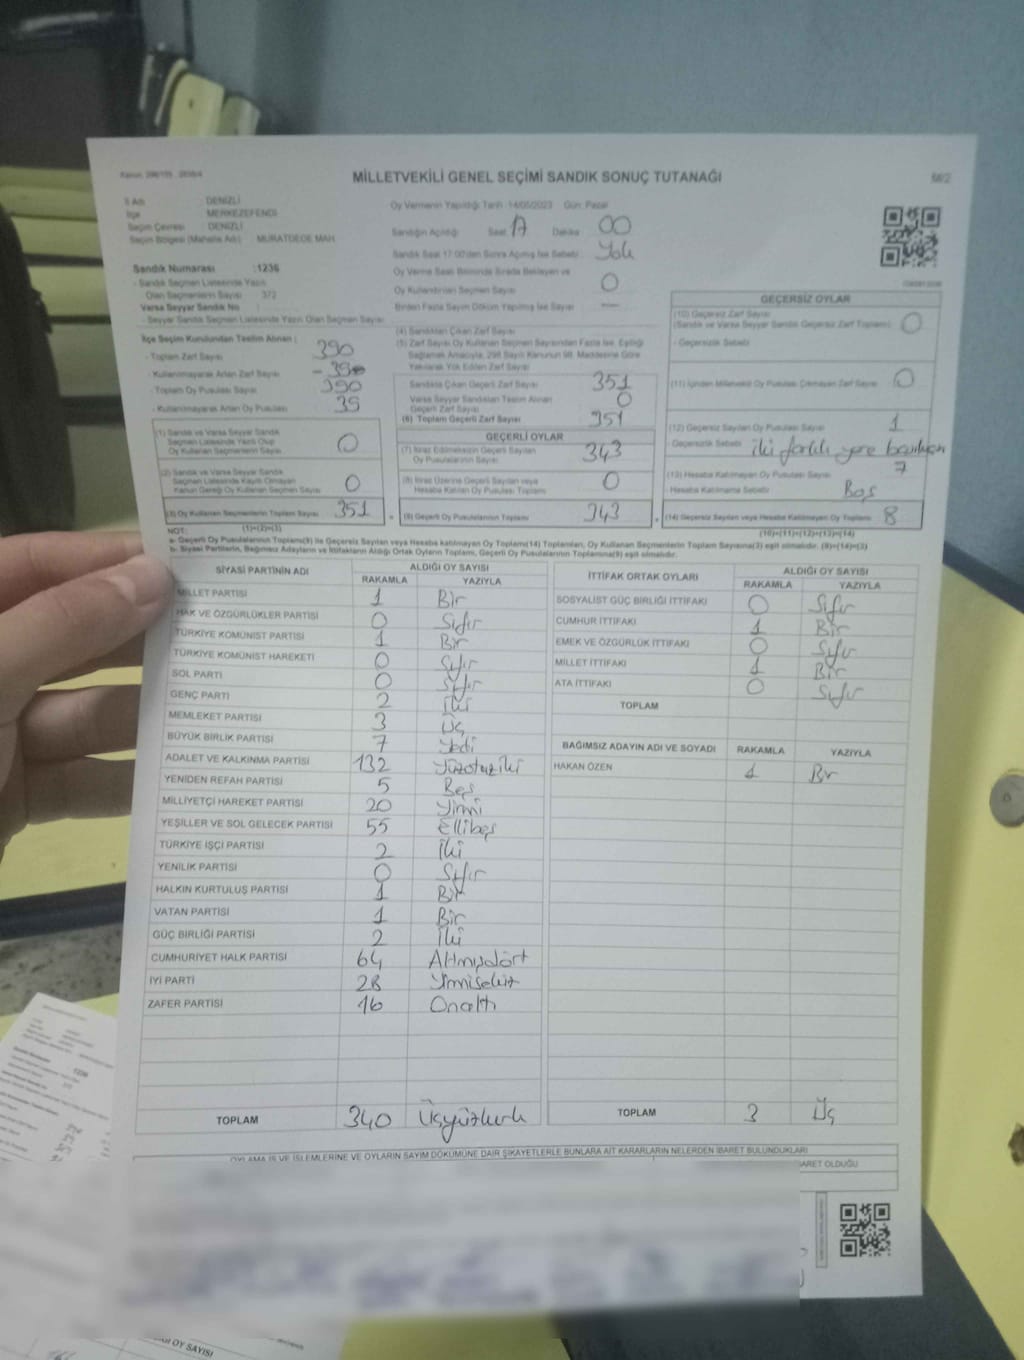 MİLLETVEKİLİ GENEL SEÇİMİ SANDIK SONUÇ TUTANAĞI
İl Adı : DENİZLİ
İlçe : MERKEZEFENDİ
Seçim Çevresi : DENİZLİ
Seçim Bölgesi (Mahalle Adı) : MURATDEDE MAH.
Sandık Numarası : 1236
- Sandık Seçmen Listesinde Yazılı
Olan Seçmenlerin Sayısı : 372
Varsa Seyyar Sandık No :
- Seyyar Sandık Seçmen Listesinde Yazılı Olan Seçmen Sayısı :
Oy Vermenin Yapıldığı Tarih : 14/05/2023 Gün: Pazar
Sandığın Açıldığı: Saat: 17 Dakika: 00
Sandık Saat 17.00'den Sonra Açılmış İse Sebebi : Yok
Oy Verme Saati Bitiminde Sırada Bekleyen ve
Oy Kullandırılan Seçmen Sayısı 0
Birden Fazla Sayım Döküm Yapılmış İse Sayısı —
İlçe Seçim Kurulundan Teslim Alınan :
- Toplam Zarf Sayısı 390
- Kullanılmayarak Artan Zarf Sayısı
- Toplam Oy Pusulası Sayısı 390
- Kullanılmayarak Artan Oy Pusulası 39
(1) Sandık ve Varsa Seyyar Sandık
Seçmen Listesinde Yazılı Olup
Oy Kullanan Seçmenlerin Sayısı 0
(2) Sandık ve Varsa Seyyar Sandık
Seçmen Listesinde Kayıtlı Olmayan
Kanun Gereği Oy Kullanan Seçmen Sayısı 0
(3) Oy Kullanan Seçmenlerin Toplam Sayısı 351
(1)+(2)=(3)
(4) Sandıktan Çıkan Zarf Sayısı
(5) Zarf Sayısı Oy Kullanan Seçmen Sayısından Fazla İse, Eşitliği
Sağlamak Amacıyla, 298 Sayılı Kanunun 98. Maddesine Göre
Yakılarak Yok Edilen Zarf Sayısı
Sandıkta Çıkan Geçerli Zarf Sayısı 351
Varsa Seyyar Sandıktan Teslim Alınan
Geçerli Zarf Sayısı 0
(6) Toplam Geçerli Zarf Sayısı 351
GEÇERLİ OYLAR
(7) İtiraz Edilmeksizin Geçerli Sayılan
Oy Pusulalarının Sayısı 343
(8) İtiraz Üzerine Geçerli Sayılan veya
Hesaba Katılan Oy Pusulası Toplamı 0
(9) Geçerli Oy Pusulalarının Toplamı 343
GEÇERSİZ OYLAR
(10) Geçersiz Zarf Sayısı
(Sandık ve Varsa Seyyar Sandık Geçersiz Zarf Toplamı) : 0
- Geçersizlik Sebebi :
(11) İçinden Milletvekili Oy Pusulası Çıkmayan Zarf Sayısı : 0
(12) Geçersiz Sayılan Oy Pusulası Sayısı : 1
- Geçersizlik Sebebi : iki farklı yere basılıyor
(13) Hesaba Katılmayan Oy Pusulası Sayısı : 7
- Hesaba Katılmama Sebebi : Boş
(14) Geçersiz Sayılan veya Hesaba Katılmayan Oy Toplamı 8
(10)+(11)+(12)+(13)=(14)
NOT:
a- Geçerli Oy Pusulalarının Toplamı(9) ile Geçersiz Sayılan veya Hesaba katılmayan Oy Toplamı(14) Toplamları, Oy Kullanan Seçmenlerin Toplam Sayısına(3) eşit olmalıdır. (9)+(14)=(3)
b- Siyasi Partilerin, Bağımsız Adayların ve İttifakların Aldığı Ortak Oyların Toplamı, Geçerli Oy Pusulalarının Toplamına(9) eşit olmalıdır.
SİYASİ PARTİNİN ADI ALDIĞI OY SAYISI
RAKAMLA YAZIYLA
MİLLET PARTİSİ 1 Bir
HAK VE ÖZGÜRLÜKLER PARTİSİ 0 Sıfır
TÜRKİYE KOMÜNİST PARTİSİ 1 Bir
TÜRKİYE KOMÜNİST HAREKETİ 0 Sıfır
SOL PARTİ 0 Sıfır
GENÇ PARTİ 2 İki
MEMLEKET PARTİSİ 3 Üç
BÜYÜK BİRLİK PARTİSİ 7 Yedi
ADALET VE KALKINMA PARTİSİ 132 Yüzotuziki
YENİDEN REFAH PARTİSİ 5 Beş
MİLLİYETÇİ HAREKET PARTİSİ 20 Yirmi
YEŞİLLER VE SOL GELECEK PARTİSİ 55 Ellibeş
TÜRKİYE İŞÇİ PARTİSİ 2 İki
YENİLİK PARTİSİ 0 Sıfır
HALKIN KURTULUŞ PARTİSİ 1 Bir
VATAN PARTİSİ 1 Bir
GÜÇ BİRLİĞİ PARTİSİ 2 İki
CUMHURİYET HALK PARTİSİ 64 Altmışdört
İYİ PARTİ 28 Yirmisekiz
ZAFER PARTİSİ 16 Onaltı
TOPLAM 340 Üçyüzkırk
İTTİFAK ORTAK OYLARI ALDIĞI OY SAYISI
RAKAMLA YAZIYLA
SOSYALİST GÜÇ BİRLİĞİ İTTİFAKI 0 Sıfır
CUMHUR İTTİFAKI 1 Bir
EMEK VE ÖZGÜRLÜK İTTİFAKI 0 Sıfır
MİLLET İTTİFAKI 1 Bir
ATA İTTİFAKI 0 Sıfır
TOPLAM
BAĞIMSIZ ADAYIN ADI VE SOYADI RAKAMLA YAZIYLA
HAKAN ÖZEN 1 Bir
TOPLAM 3 Üç
OYLAMA İŞ VE İŞLEMLERİNE VE OYLARIN SAYIM DÖKÜMÜNE DAİR ŞİKAYETLERLE BUNLARA AİT KARARLARIN NELERDEN İBARET BULUNDUKLARI
BARET OLDUĞU
1236
OY SAYISI